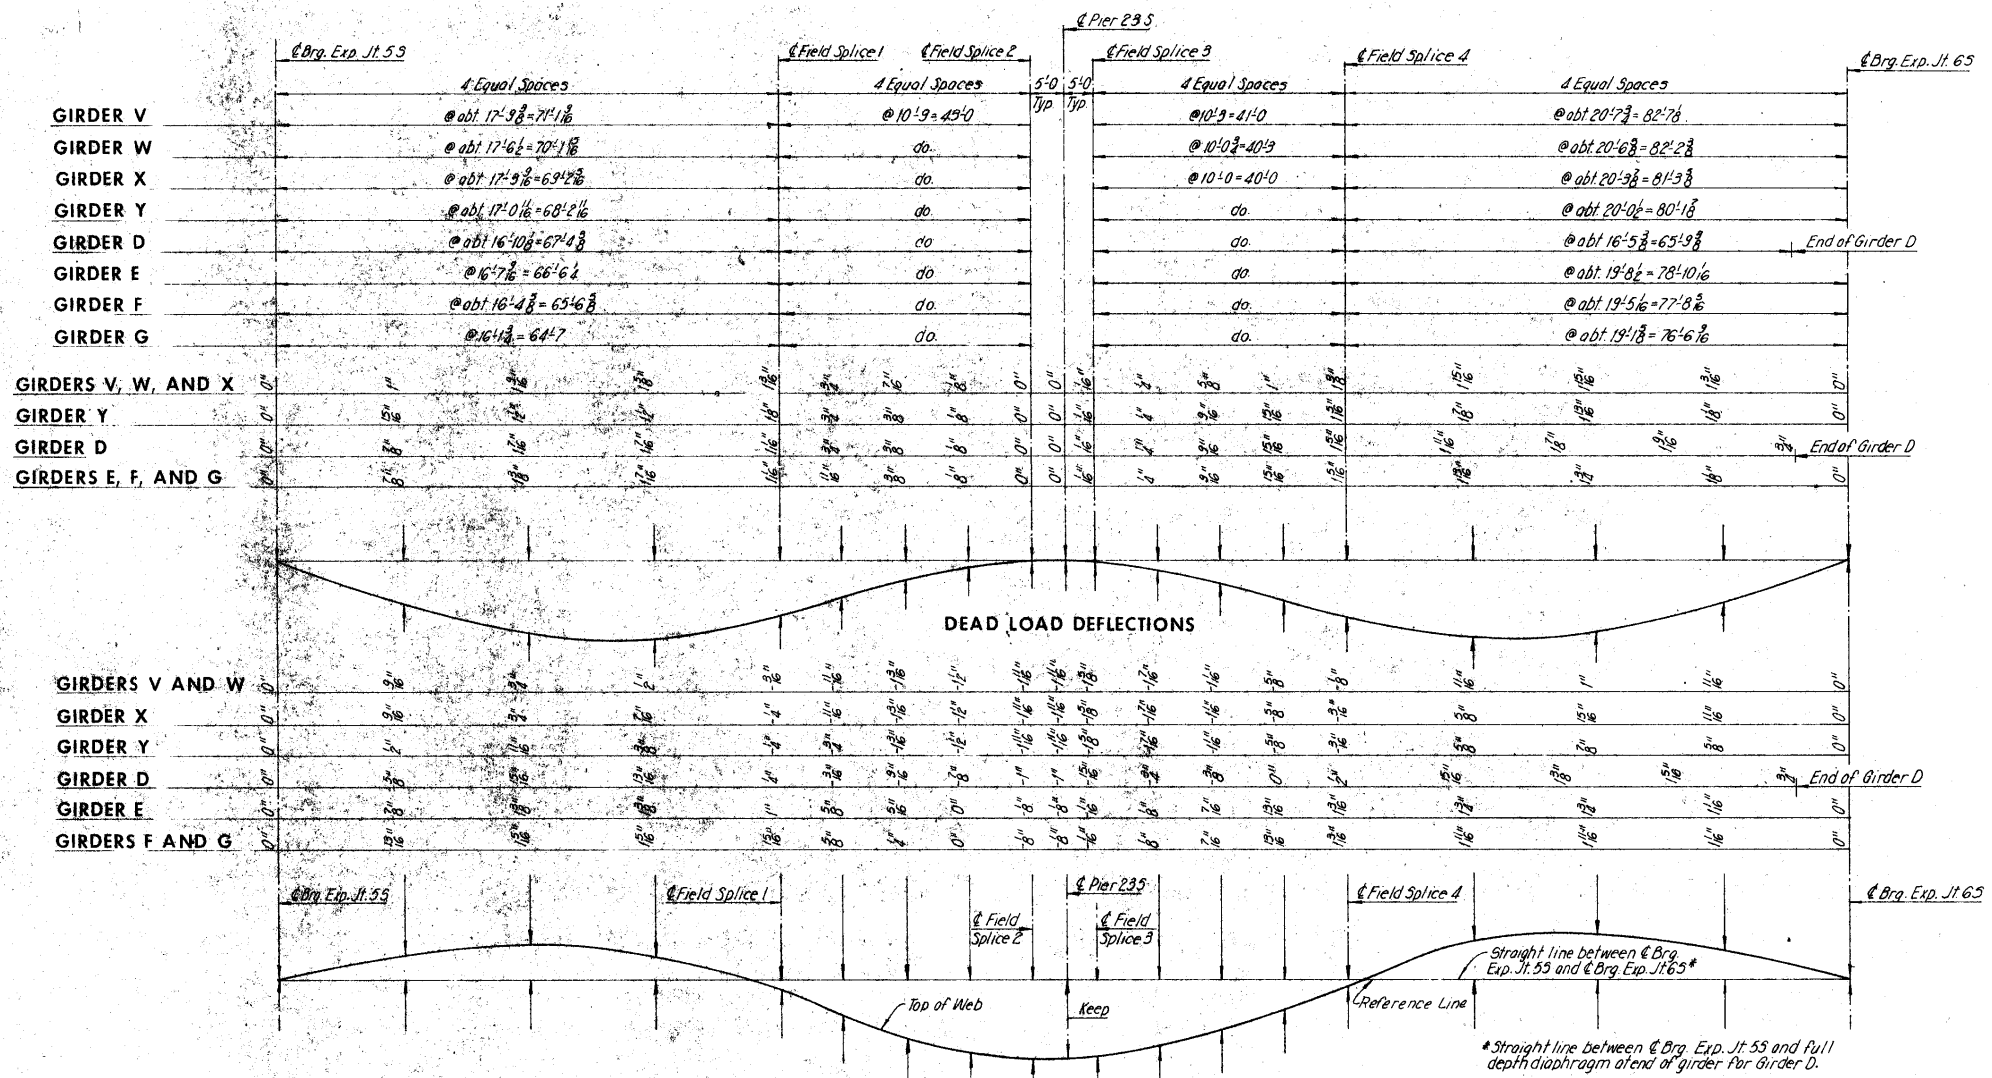 ℄ Pier 23S
℄ Brg. Exp. Jt. 5S
℄ Field Splice 1
℄ Field Splice 2
℄ Field Splice 3
℄ Field Splice 4
℄ Brg. Exp. Jt. 6S
4 Equal Spaces
4 Equal Spaces
5'-0
5'-0
4 Equal Spaces
4 Equal Spaces
Typ.
Typ.
GIRDER V @ abt. @ 10'-9 = 43'-0 = 41'-0 @ abt 20'-7 3/4 = 82'-7 1/8
GIRDER W @ abt. 17'-6 1/2 = 70'-1 15/16 do. @ 10'-0 3/4 = 40'-3 @ abt. 20'-6 5/8 = 82'-2 3/8
GIRDER X @ abt. do. @ 10'-0 = 40'-0 @ abt. 20'-3 7/8 = 81'-3 3/8
GIRDER Y @ abt. 17'-0 11/16 = 68'-2 11/16 do. do. @ abt. 20'-0 1/2 = 80'-1 7/8
GIRDER D @ abt 16'-10 1/8 = 67'-4 3/8 do do. @ abt 16'-5 3/8 = 65'-9 3/8 End of Girder D
GIRDER E @ 16'-7 9/16 = 66'-6 1/4 do do. @ abt. 19'-8 1/2 = 78'-10 1/16
GIRDER F @ abt 16'-4 5/8 = 65'-6 3/8 do. do. @ abt. 19'-5 1/16 = 77'-8 5/16
GIRDER G @ 16'-1 3/4 = 64'-7 do. do. @ abt. 19'-1 5/8 = 76'-6 9/16
GIRDERS V, W, AND X 0" 1" 1 5/8" 3/4" 7/16" 1/8" 0" 0" 1/16" 1/4" 5/8" 1" 1 15/16" 0"
GIRDER Y 0" 15/16" 1 1/2" 1 1/2" 1 1/8" 3/4" 3/8" 1/8" 0" 0" 1/16" 1/4" 9/16" 15/16" 1 5/16" 1 7/8" 1 13/16" 1 1/8" 0"
GIRDER D 0" 7/8" 1 7/16" 1 7/16" 1 1/16" 3/4" 3/8" 1/8" 0" 0" 1/16" 1/4" 9/16" 15/16" 1 5/16" 1 11/16" 1 7/8" 1 9/16" 3/4" End of Girder D
GIRDERS E, F, AND G 0" 7/8" 1 3/8" 1 7/16" 1 1/16" 11/16" 3/8" 1/8" 0" 0" 1/16" 1/4" 9/16" 15/16" 1 5/16" 1 13/16" 1 3/4" 1 1/8" 0"
DEAD LOAD DEFLECTIONS
GIRDERS V AND W 0" 9/16" 3/4" 1/2" -3/16" -11/16" -1 3/16" -1 1/2" -1 11/16" -1 11/16" -1 5/8" -1 7/16" -1 1/16" -5/8" -1/8" 11/16" 1" 11/16" 0"
GIRDER X 0" 9/16" 3/4" 7/16" -1/4" -11/16" -1 3/16" -1 1/2" -1 11/16" -1 11/16" -1 5/8" -1 7/16" -1 1/16" -5/8" -3/16" 5/8" 15/16" 11/16" 0"
GIRDER Y 0" 1/2" 11/16" 3/8" -1/4" -3/4" -1 3/16" -1 1/2" -1 11/16" -1 11/16" -1 5/8" -1 7/16" -1 1/16" -5/8" -3/16" 5/8" 7/8" 5/8" 0"
GIRDER D 0" 5/8" 15/16" 13/16" 1/4" -3/16" -9/16" -7/8" -1" -1" -15/16" -3/4" -3/8" 0" 1/2" 15/16" 1 3/8" 1 5/16" 3/4" End of Girder D
GIRDER E 0" 7/8" 1" 5/8" 5/16" 0" -1/8" -1/8" -1/16" 1/8" 7/16" 13/16" 1 3/16" 1 3/4" 1 3/4" 1 1/16" 0"
GIRDERS F AND G 0" 15/16" 1 5/16" 1 5/16" 15/16" 5/8" 1/4" 0" -1/8" -1/8" -1/16" 1/8" 7/16" 13/16" 1 3/16" 1 11/16" 1 11/16" 1 1/16" 0"
℄ Brg. Exp. Jt. 5S
℄ Field Splice 1
℄ Pier 23S
℄ Field Splice 4
℄ Brg. Exp. Jt. 6S
℄ Field
Splice 2
℄ Field
Splice 3
Straight line between ℄ Brg.
Exp. Jt. 5S and ℄ Brg. Exp. Jt 6S*
Top of Web
Keep
Reference Line
*Straight line between ℄ Brg. Exp. Jt. 5S and full
depth diaphragm at end of girder for Girder D.